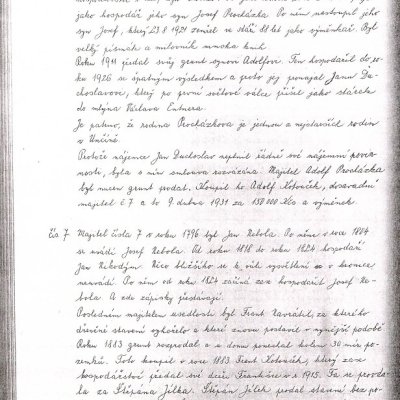 jako hospodář jeho syn Josef Procházka. Po něm nastoupil jeho
syn Josef, který 23.8 1921 zemřel ve stáří 88 let jako výměnkář. Byl
velký písmák a milovník mnoha knih.
Roku 1911 předal svůj grunt synovi Adolfovi. Ten hospodařil do ro-
ku 1926 se špatným výsledkem a proto jej pronajal Janu Du-
choslavovi, který po první světové válce přišel jako stárek
do mlýna Václava Entnera.
Je patrno, že rodina Procházkova je jednou z nejstarších rodin
v Určině.
Protože nájemce Jan Duchoslav neplnil řádně své nájemní povin-
nosti, byla s ním smlouva rozvázána. Majitel Adolf Procházka
byl nucen grunt prodat. Koupil ho Adolf Kotouček, dosavadní
majitel č 7 a to 9 dubna 1931 za 158000 Kčs a výměnek.
čís 7. Majitel čísla 7 v roku 1796 byl Jan Nebola. Po něm v roce 1804
se uvádí Josef Nebola. Od roku 1818 do roku 1824 hospodaří
Jan Nikodým. Něco bližšího se k věci vysvětlení se v kronice
neuvádí. Po něm od roku 1824 začíná zas hospodařit Josef Ne-
bola. A zde zápisky přestávají.
Posledním majitelem usedlosti byl Frant Navrátil za kterého
dřevěné stavení vyhořelo a které znovu postavil v nynější podobě
Roku 1883 grunt rozprodal a u domu ponechal kolem 30 měr po-
zemků. Toto koupil v roce 1883. Frant Kotouček, který zas
hospodářství předal své dceři Františce v r. 1915. Ta se prova-
la za Štěpána Jílka. Štěpán Jílek prodal stavení bez po-